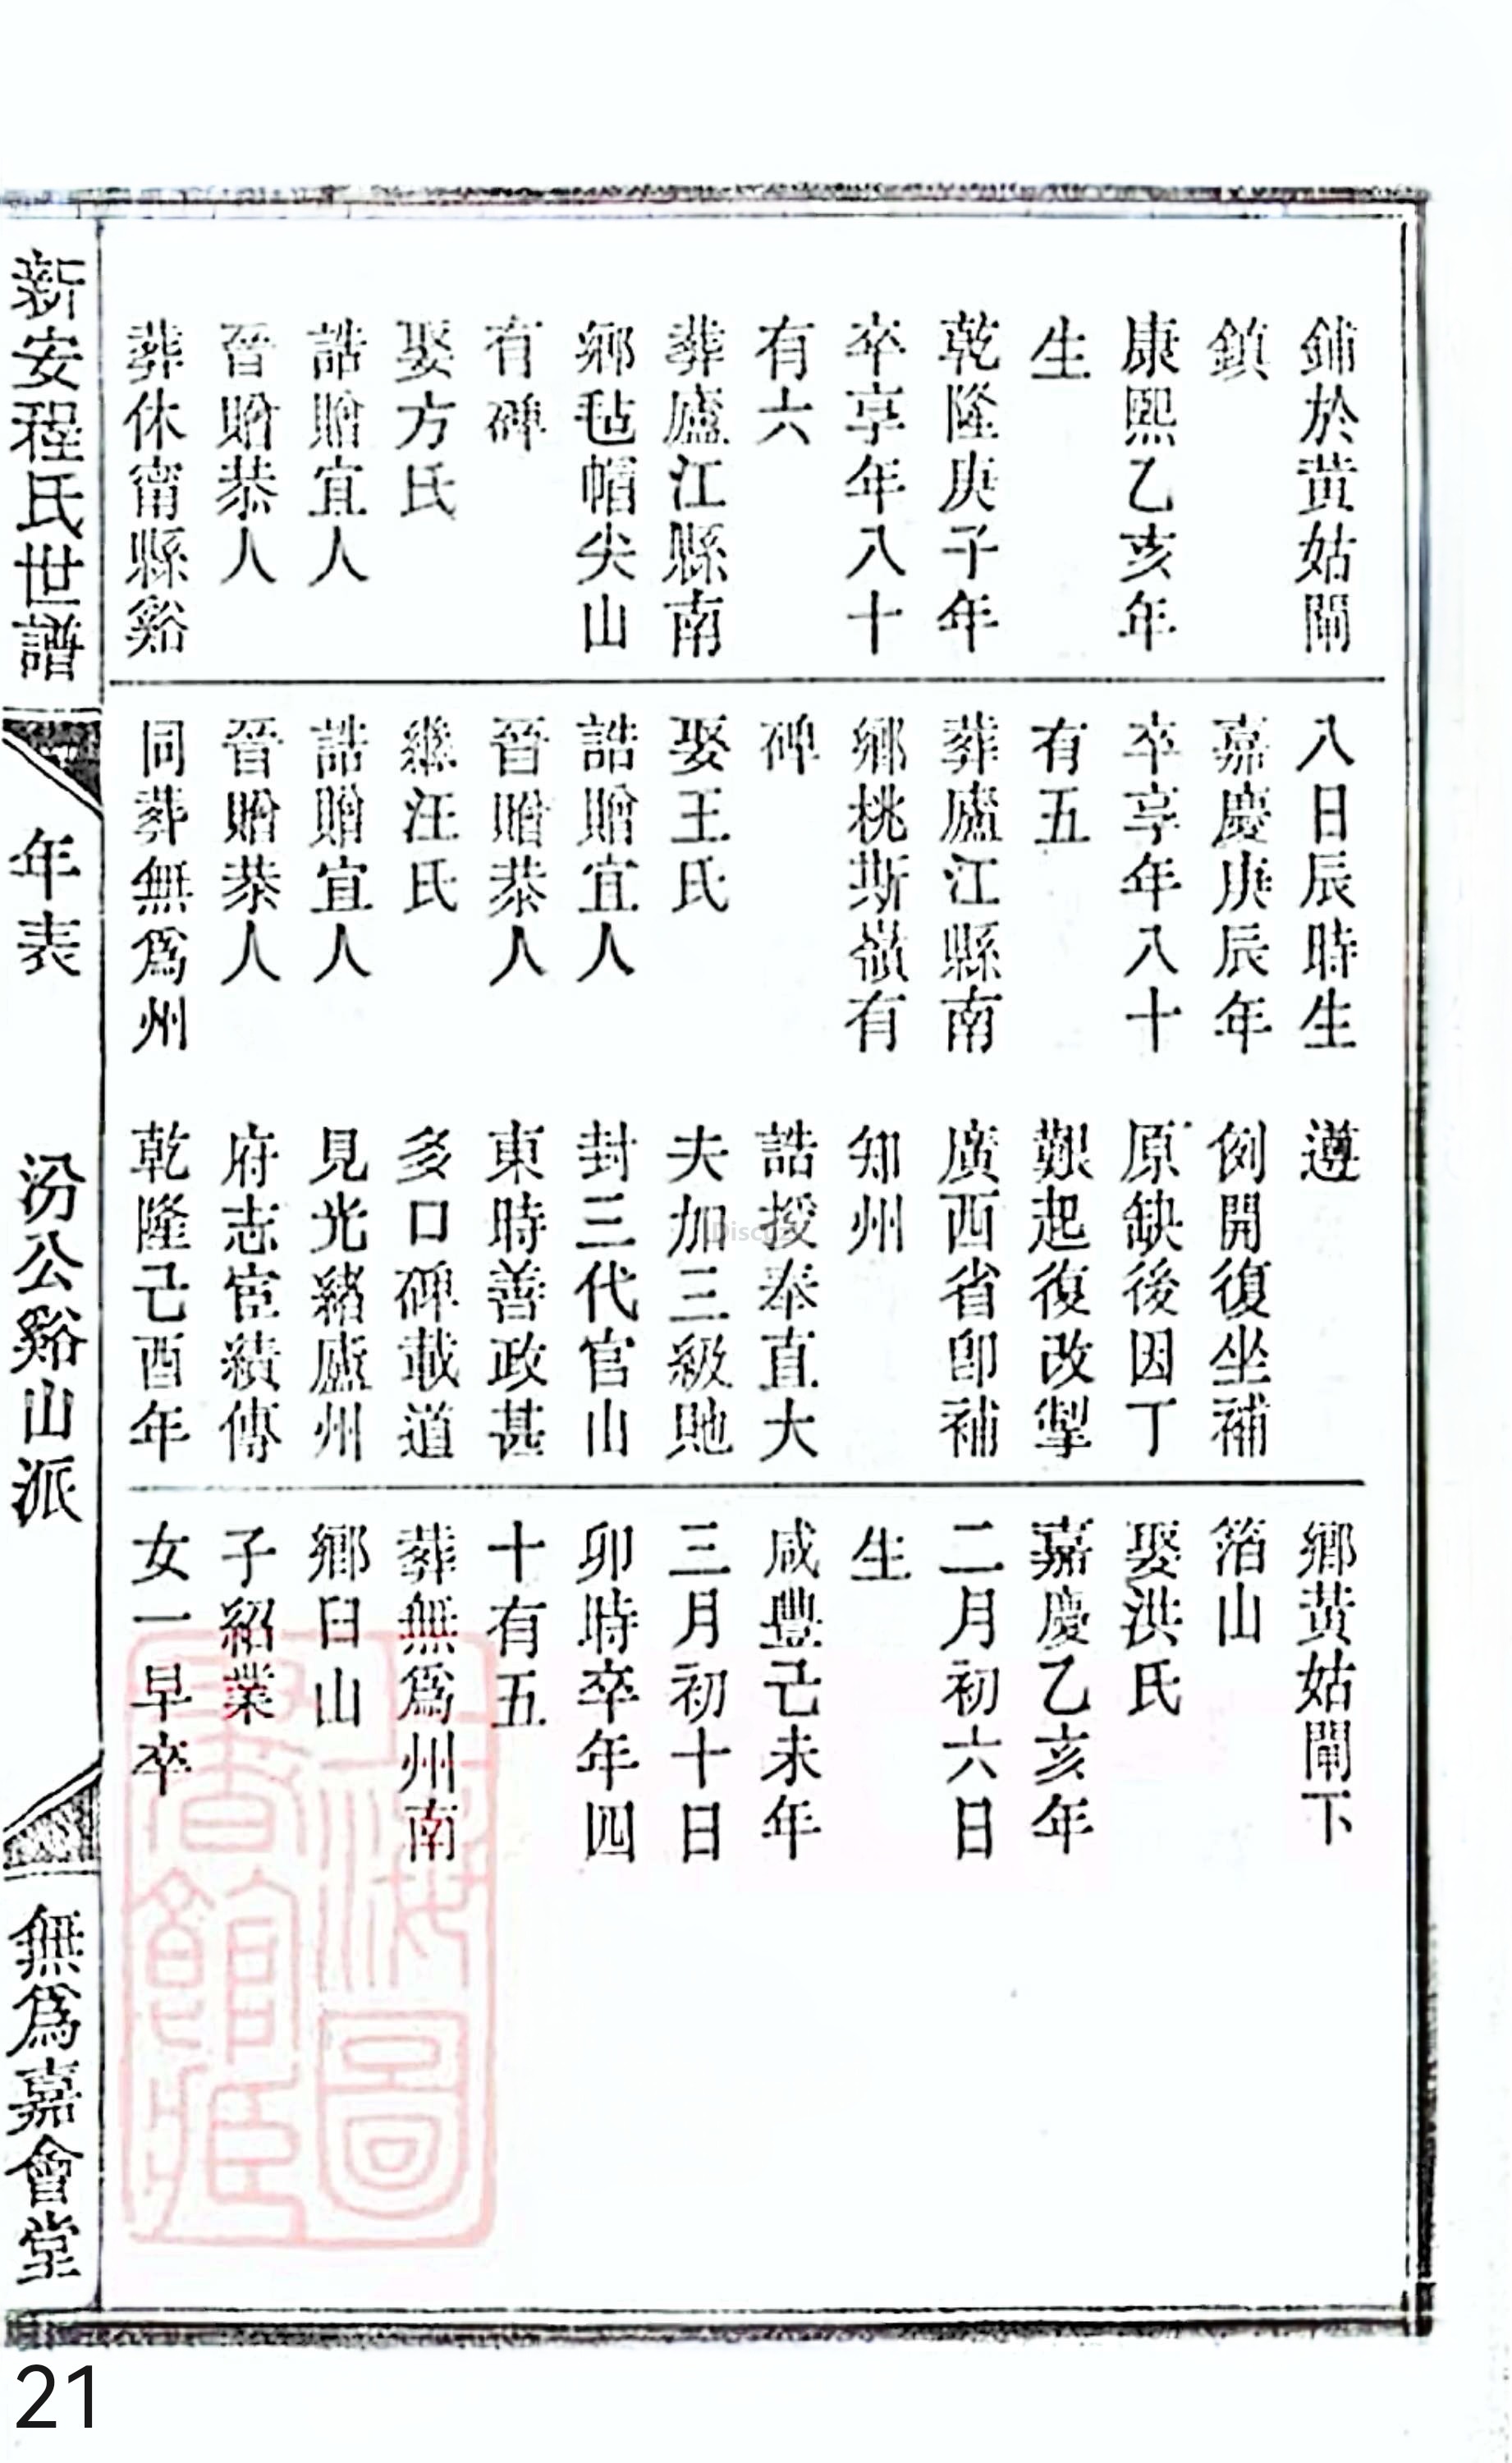 鋪於黃姑閘
鎮
康熙乙亥年
生
乾隆庚子年
卒享年八十
有六
葬廬江縣南
鄉毡帽尖山
有碑
娶方氏
誥贈宜人
晉贈恭人
葬休甯縣谿
八日辰時生
嘉慶庚辰年
卒享年八十
有五
葬廬江縣南
鄉桃斯嶺有
碑
娶王氏
誥贈宜人
晉贈恭人
繼汪氏
誥贈宜人
晉贈恭人
同葬無爲州
遵
例開復坐補
原缺後因丁
艱起復改掣
廣西省卽補
知州
誥授奉直大
夫加三級貤
封三代官山
東時善政甚
多口碑載道
見光緒廬州
府志宦績傳
乾隆己酉年
鄉黃姑閘下
箔山
娶洪氏
嘉慶乙亥年
二月初六日
生
咸豐己未年
三月初十日
卯時卒年四
十有五
葬無爲州南
鄉臼山
子紹業
女一早卒
新安程氏世譜
年表
汾公谿山派
無爲嘉會堂
上海圖
書館藏
Discuz
21